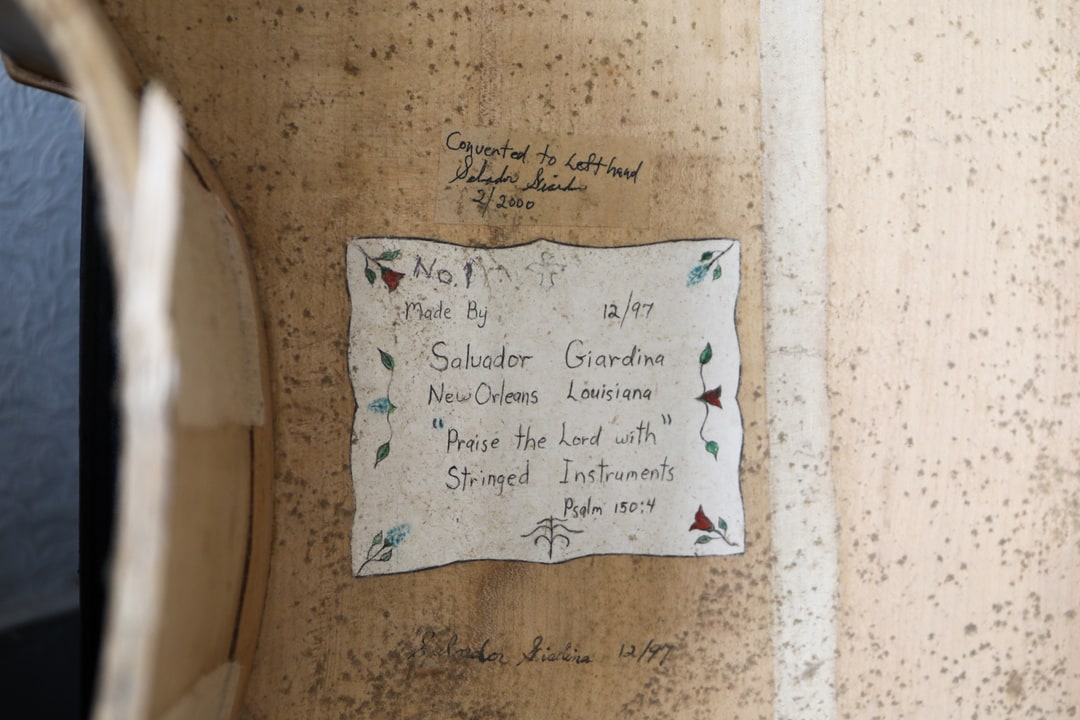 Converted to Lefthand
Salvador Giardina
2/2000
No. 1
Made By 12/97
Salvador Giardina
New Orleans Louisiana
"Praise the Lord with"
Stringed Instruments
Psalm 150:4
Salvador Giardina 12/97